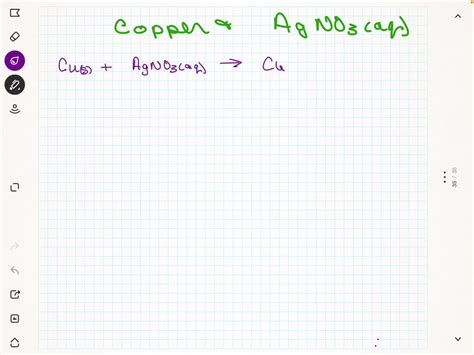 Copper & AgNO3(aq)
Cu(s) + AgNO3(aq) → Cu